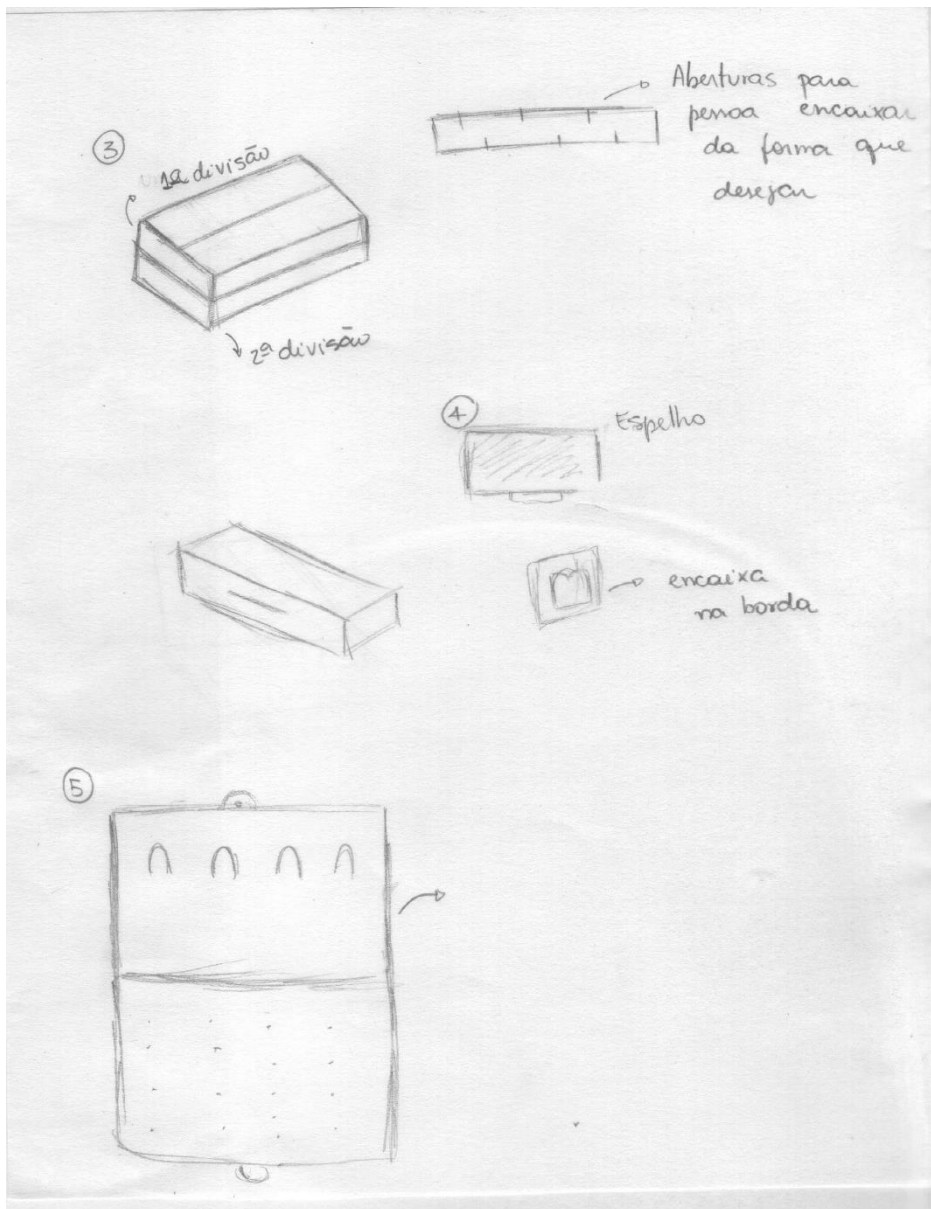 Aberturas para
pessoa encaixar
da forma que
desejar
3
1ª divisão
2ª divisão
4
Espelho
encaixa
na borda
5